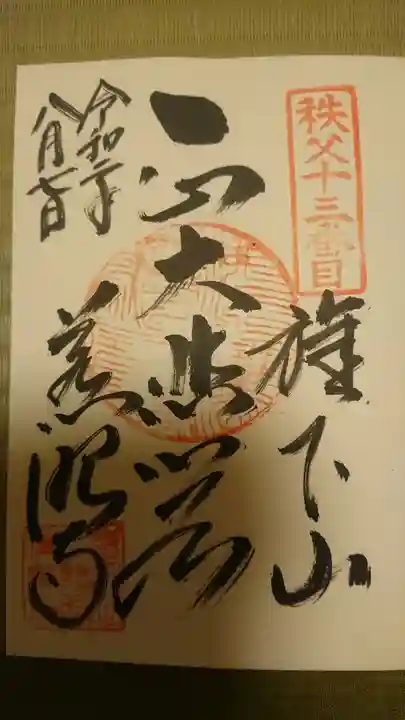 秩父十三番目
旗下山
大悲
慈眼寺
令和二年
八月七日